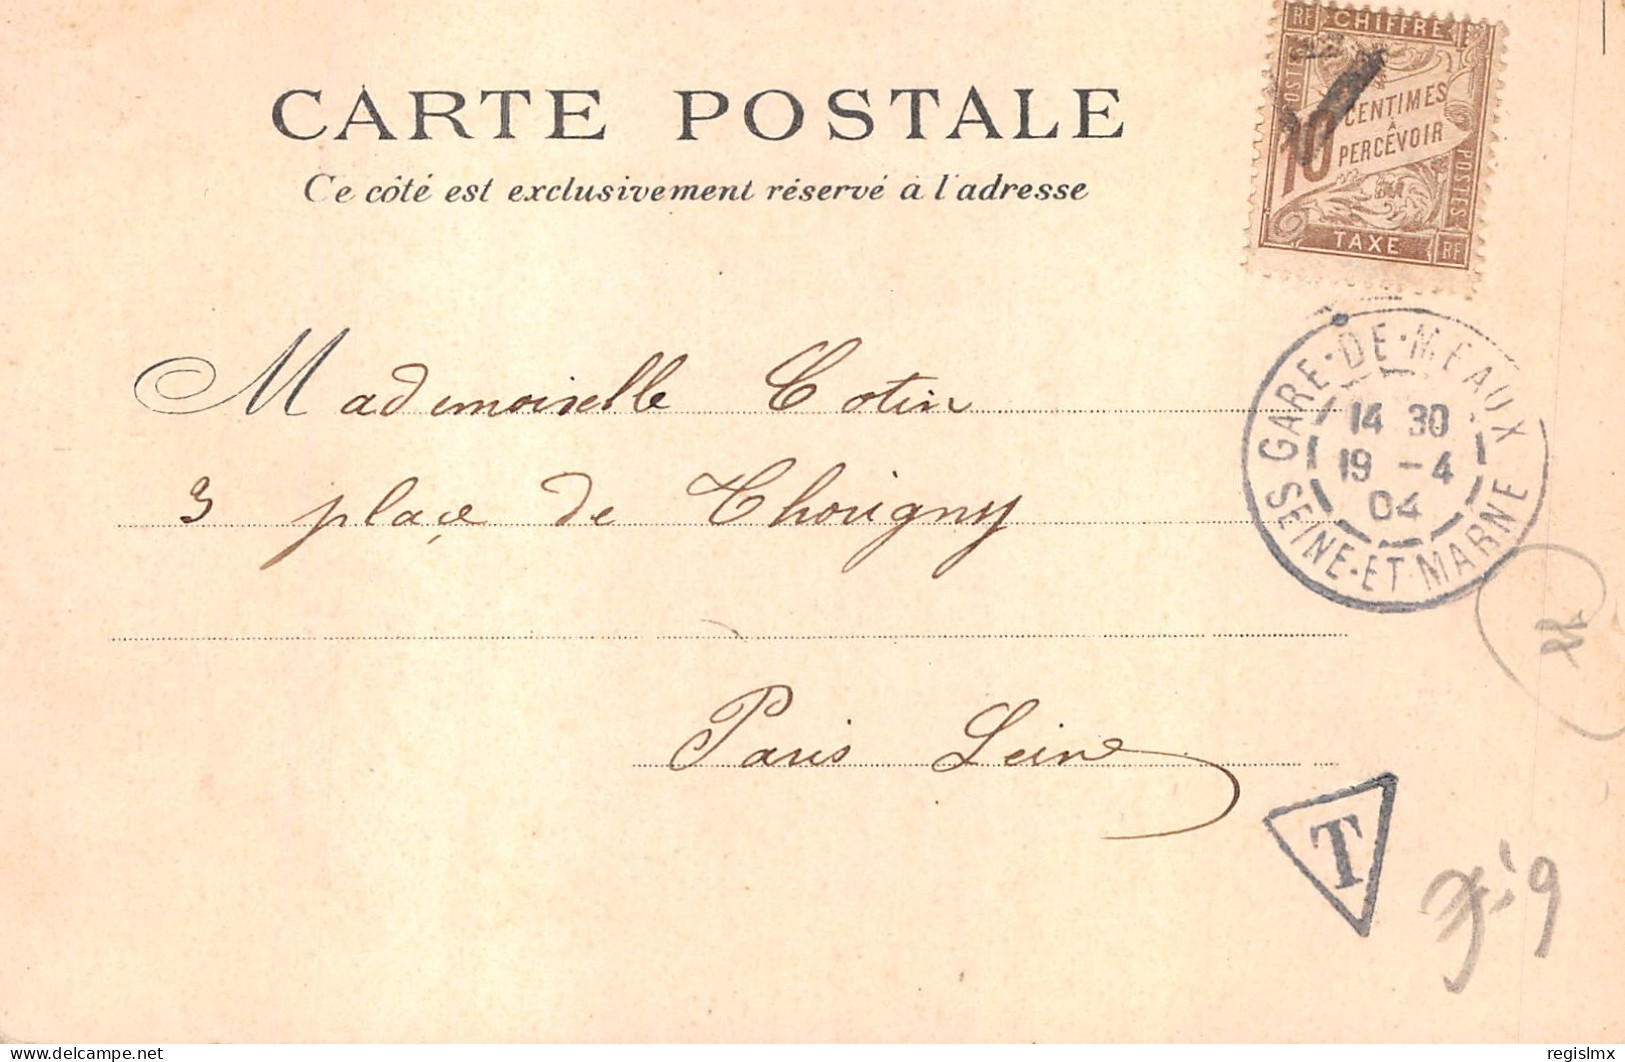 CARTE POSTALE
Ce côté est exclusivement réservé à l'adresse
RF CHIFFRE
POSTES
10 CENTIMES
À
PERCEVOIR
POSTES
TAXE RF
GARE-DE-MEAUX
14 30
19 -4
04
SEINE-ET-MARNE
Mademoiselle Cotin
3 place de Thorigny
Paris Seine
T
Delcampe.net
regislmx